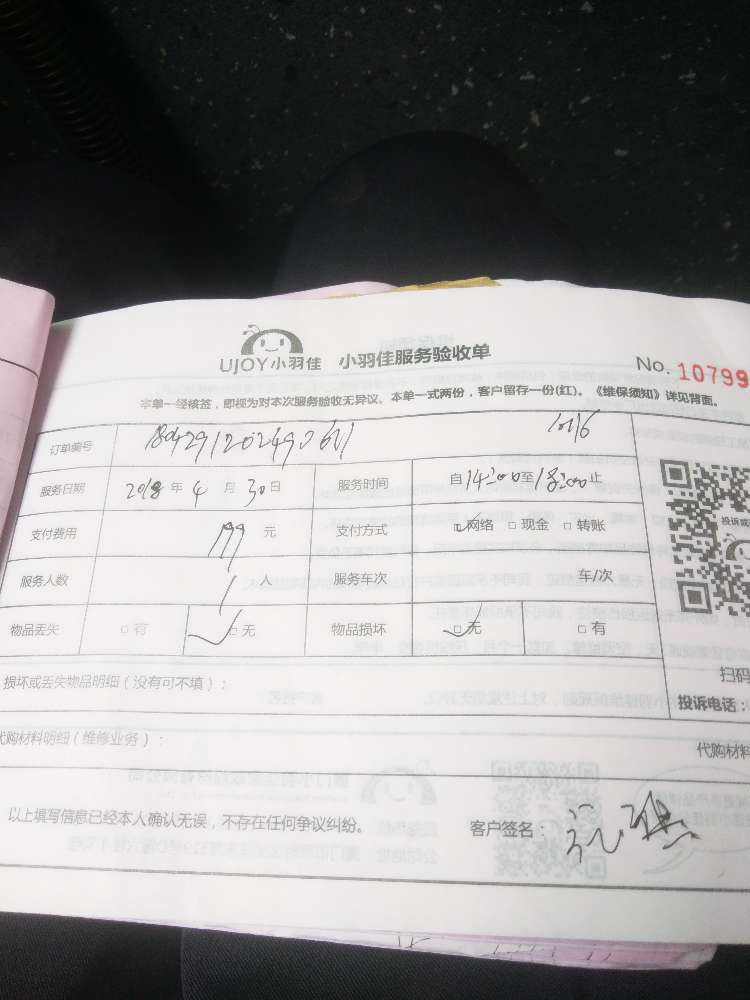 UJOY小羽佳 小羽佳服务验收单
No. 10799
本单一经核签,即视为对本次服务验收无异议。本单一式两份,客户留存一份(红)。《维保须知》详见背面。
订单编号
服务日期 2018年 4 月 30日 服务时间 自14:00至18:00止
支付费用 199 元 支付方式 ☑网络 □现金 □转账
服务人数 1 人 服务车次 车/次
物品丢失 □有 ☑无 物品损坏 ☑无 □有
投诉或
损坏或丢失物品明细(没有可不填):
扫码
投诉电话:
代购材料明细(维修业务): 代购材料
以上填写信息已经本人确认无误,不存在任何争议纠纷。 客户签名: